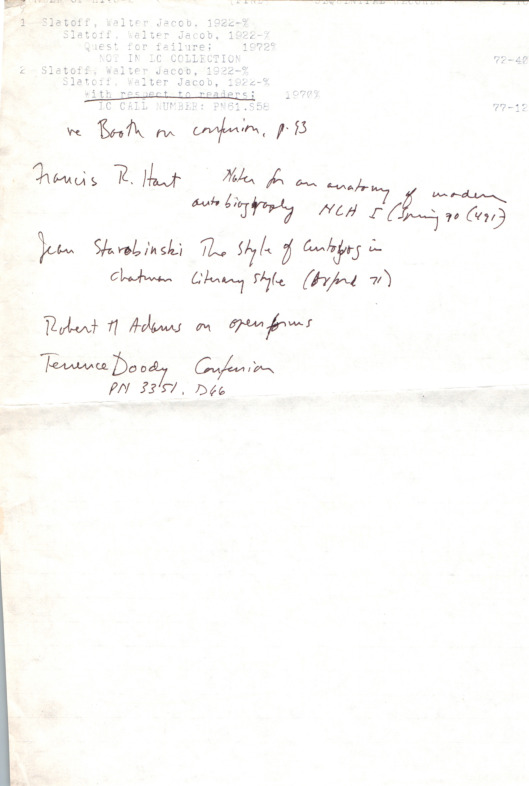 1 Slatoff, Walter Jacob. 1922-%
Slatoff, Walter Jacob, 1922-%
Quest for failure; 1972%
NOT IN LC COLLECTION 72-42
2 Slatoff, Walter Jacob, 1922-%
Slatoff, Walter Jacob, 1922-%
With respect to readers; 1970%
LC CALL NUMBER: PN81.S58 77-12
re Booth on confusion, p. 93
Francis R. Hart Notes for an anatomy of modern
autobiography NLH I (Spring 70 (491)
Jean Starobinski The Style of Autobiog in
Chatman Literary Style (Oxford 71)
Robert M Adams on open forms
Terrence Doody Confession
PN 3351. D66